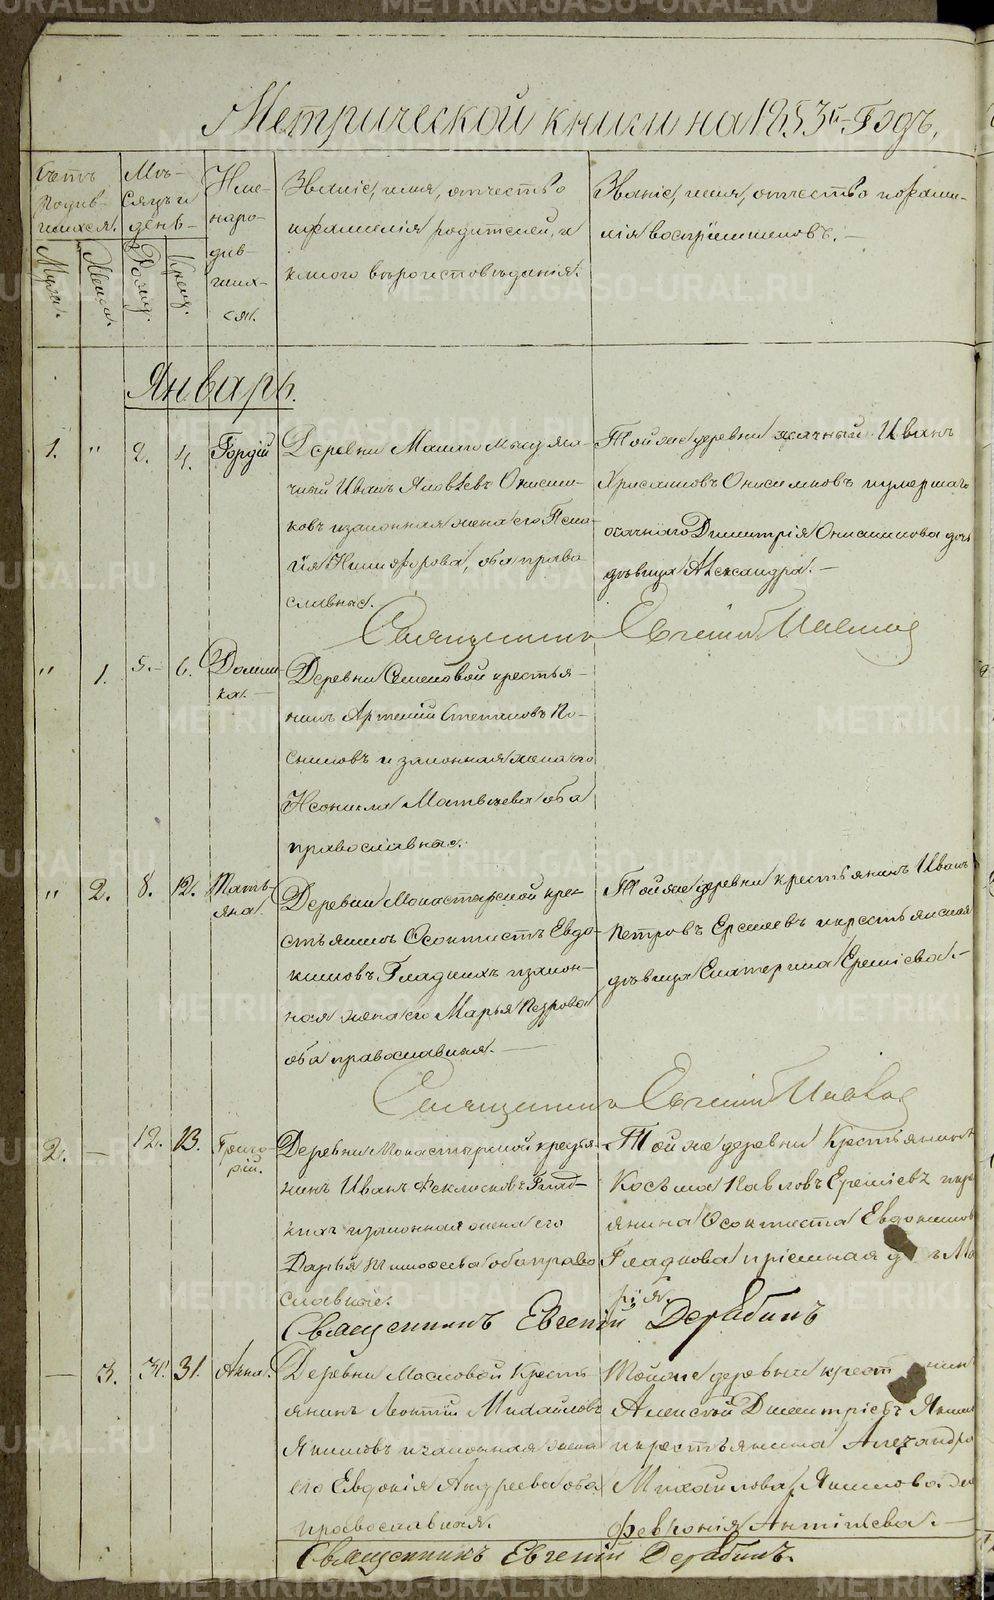 Метрической книги на 1853й Годъ,
Счетъ родив-шихся.
Мѣ-сяцъ и день
Име-на ро-див-ших-ся.
Званіе, имя, отчество
и фамилія родителей, и
какого вѣроисповѣданія.
Званіе, имя, отчество и фами-
лія воспріемниковъ. —
Муж.
Женс.
Рожд.
Крещ.
Январь.
1. " 2. 4. Гордій
Деревни
чный Иванъ Яковлевъ Онисим-
ковъ и законная жена его Пела-
гія Никифорова, оба право
славные.
Той же деревни Иванъ
Хрисанѳовъ Онисимковъ и умершаго
Димитрія Онисимкова дочь
дѣвица Александра. —
Священникъ Евгеній
" 1. 5. 6. Домни-
ка. —
Деревни крестья-
нинъ Артемій Степановъ По-
и законная жена его
Неонила Матвѣева оба
православные.
" 2. 8. 12. Тать-
яна.
Деревни Монастырской кре-
стьянинъ Ѳеоктистъ Евдо-
кимовъ Гладкихъ и закон-
ная жена его Марья Петрова
оба православныя. —
Той же деревни крестьянинъ Иванъ
Петровъ Ершевъ и крестьянская
дѣвица Екатерина Ершева. —
Священникъ Евгеній
2. — 12. 13. Григо-
рій.
Деревни Монастырской крестья-
нинъ Иванъ Глад-
кихъ и законная жена его
Дарья Тимоѳеева оба право
славные.
Той же деревни Крестьянинъ
Косьма Павловъ Ершевъ и кре
янина Ѳеоктиста Евдокимов
Гладкова пріемная д ь Ма
рія.
Священникъ Евгеній Дерябинъ
— 3. 31. 31. Анна.
Деревни Масловой Кресть
янинъ Леонтій Михайловъ
Якимовъ и законная жена
его Евдокія Андреева оба
православныя.
Той же деревни крест нин
Алексѣй Димитріевъ Якимо
и крестьянина Александра
Михайлова Якимова
Февронія Антипьева. —
Священникъ Евгеній Дерябинъ.
METRIKI.GASO-URAL.RU